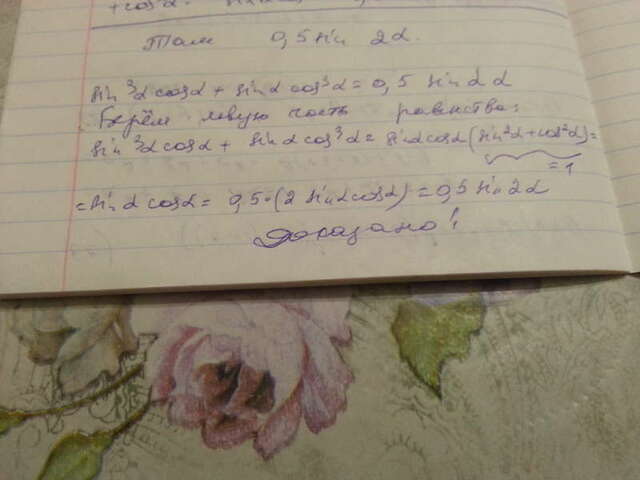 + cosα =
Там 0,5 sin 2α.
sin³α cosα + sinα cos³α = 0,5 sin 2α
Берём левую часть равенства:
sin³α cosα + sinα cos³α = sinα cosα (sin²α + cos²α) =
= 1
= sinα cosα = 0,5·(2 sinα cosα) = 0,5 sin 2α
Доказано!